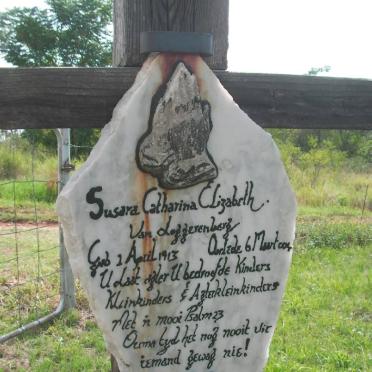 Susara Catharina Elizabeth.
Van Loggerenberg
Geb 2 April 1913 Oorlede 6 Maart
U laat agter U bedroefde Kinders
Kleinkinders & Agterkleinkinders
Met 'n mooi Psalm 23
Ouma tyd het nog nooit vir
iemand gewag nie!